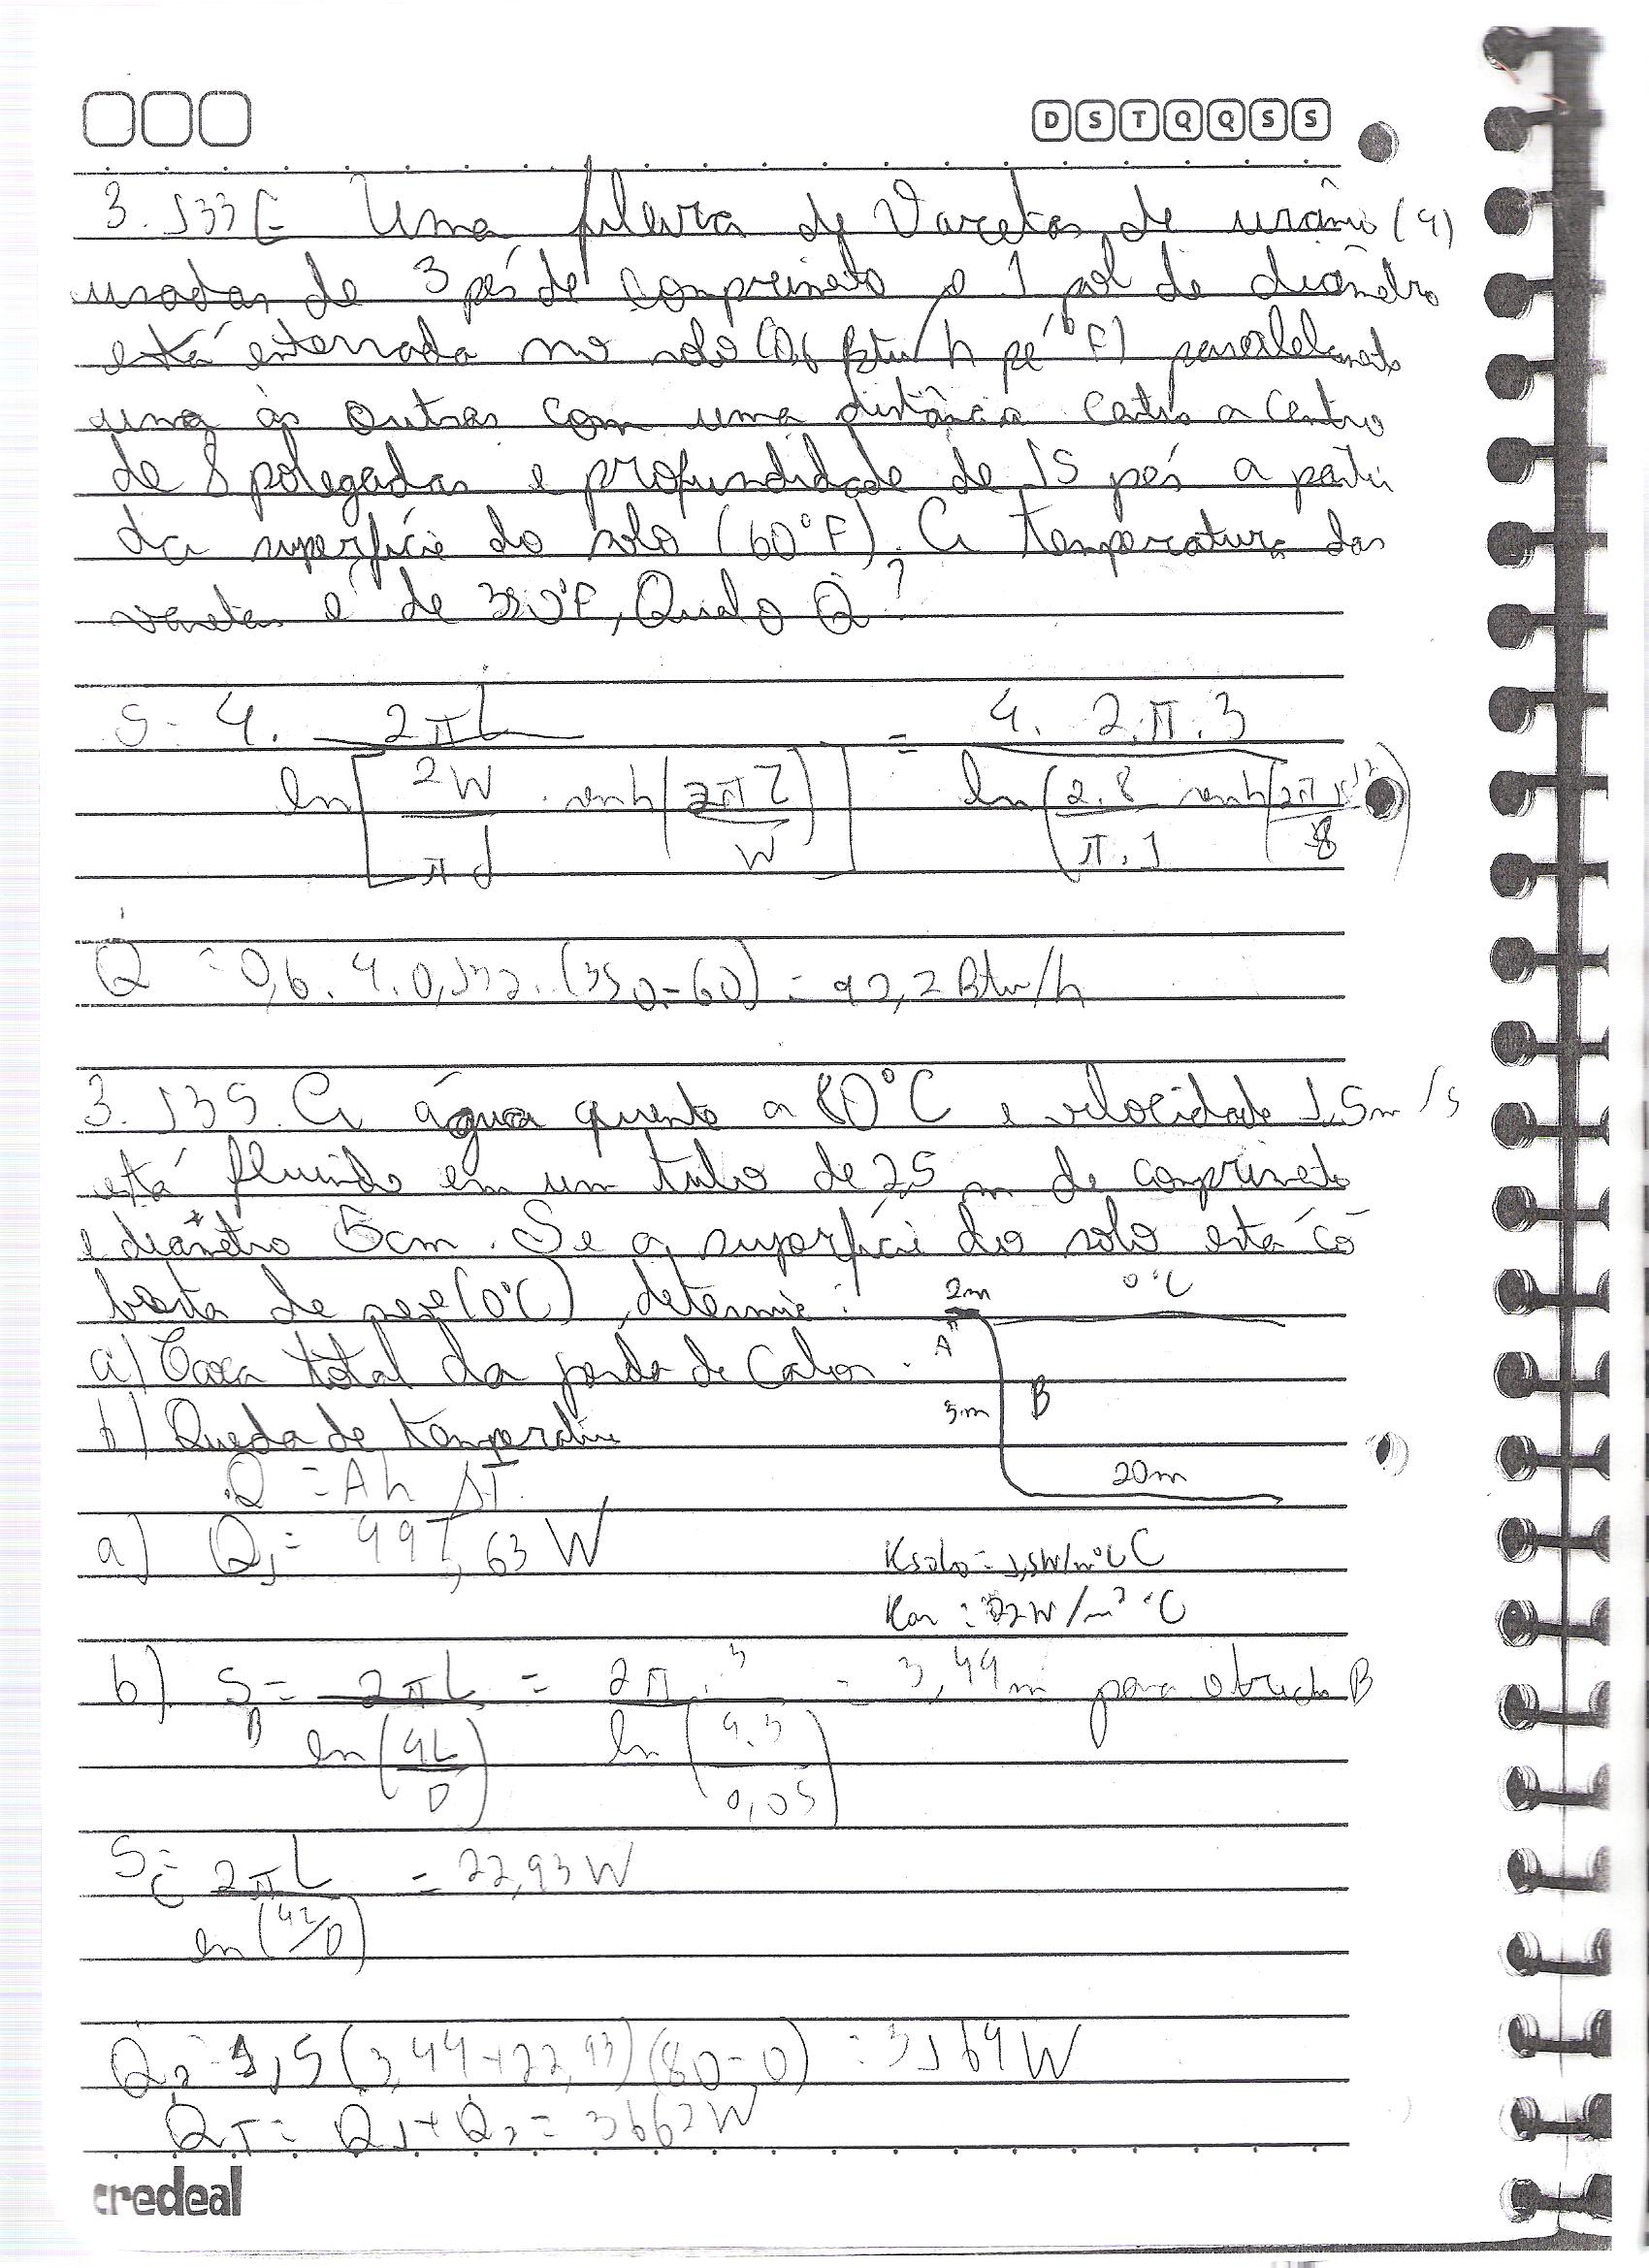 D S T Q Q S S
3.133E Uma fileira de Varetas de urânio (4)
usadas de 3 pés de comprimeto e 1 pol de diâmetro
está enterrada no solo (0,6 Btu/h pé °F) paralelamente
uma às outras com uma distância centro a centro
de 8 polegadas e profundidade de 15 pés a partir
da superfície do solo (60°F). A temperatura das
varetas é de 350°F, Qual o Q̇?
S = 4. 2πL / ln[2W/πd . senh(2πZ/W)] = 4. 2.π.3 / ln(2.8/π.1 senh(2π 15 12/8))
Q̇ = 0,6. 4. 0,132. (350-60) = 92,2 Btu/h
3.135. A água quente a 80°C e velocidade 1,5m/s
está fluindo em um tubo de 25 m de comprimeto
e diâmetro 5cm. Se a superfície do solo está co
berta de neve (0°C), determine:
2m 0°C
a) Taxa total da perda de Calor.
A
b) Queda de temperatura
3m B
20m
Q̇ = Ah ΔT
a) Q̇1 = 497,63 W
Ksolo = 1,5W/m°C
Kar = 22W/m² °C
b) S_B = 2πL / ln(4L/D) = 2π.3 / ln(4.3/0,05) = 3,44m para o trecho B
S_C = 2πL / ln(4z/D) = 22,93 W
Q̇2 = 1,5 (3,44+22,93)(80-0) = 3164 W
Q̇T = Q̇1+Q̇2 = 3662 W
credeal